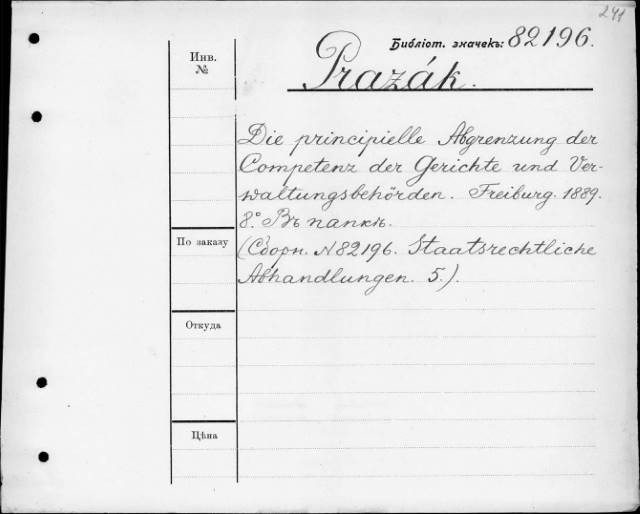 241
Библіот. значекъ: 82196.
Prazák.
Инв.
№
Die principielle Abgrenzung der
Competenz der Gerichte und Ver-
waltungsbehörden. Freiburg. 1889.
8.° Въ папкѣ.
(Сборн. №82196. Staatsrechtliche
Abhandlungen. 5.).
По заказу
Откуда
Цѣна